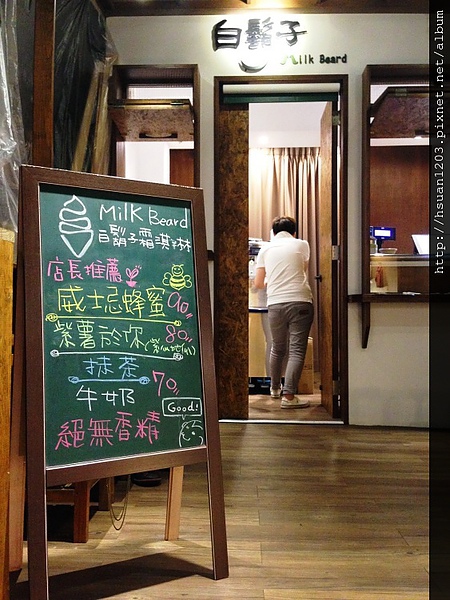 白鬍子
Milk Beard
MilK Beard
白鬍子霜淇淋
店長推薦
威士忌蜂蜜90
紫薯於你 80
抹茶
牛奶 70
Good!
絕無香精
http://hsuan1203.pixnet.net/album